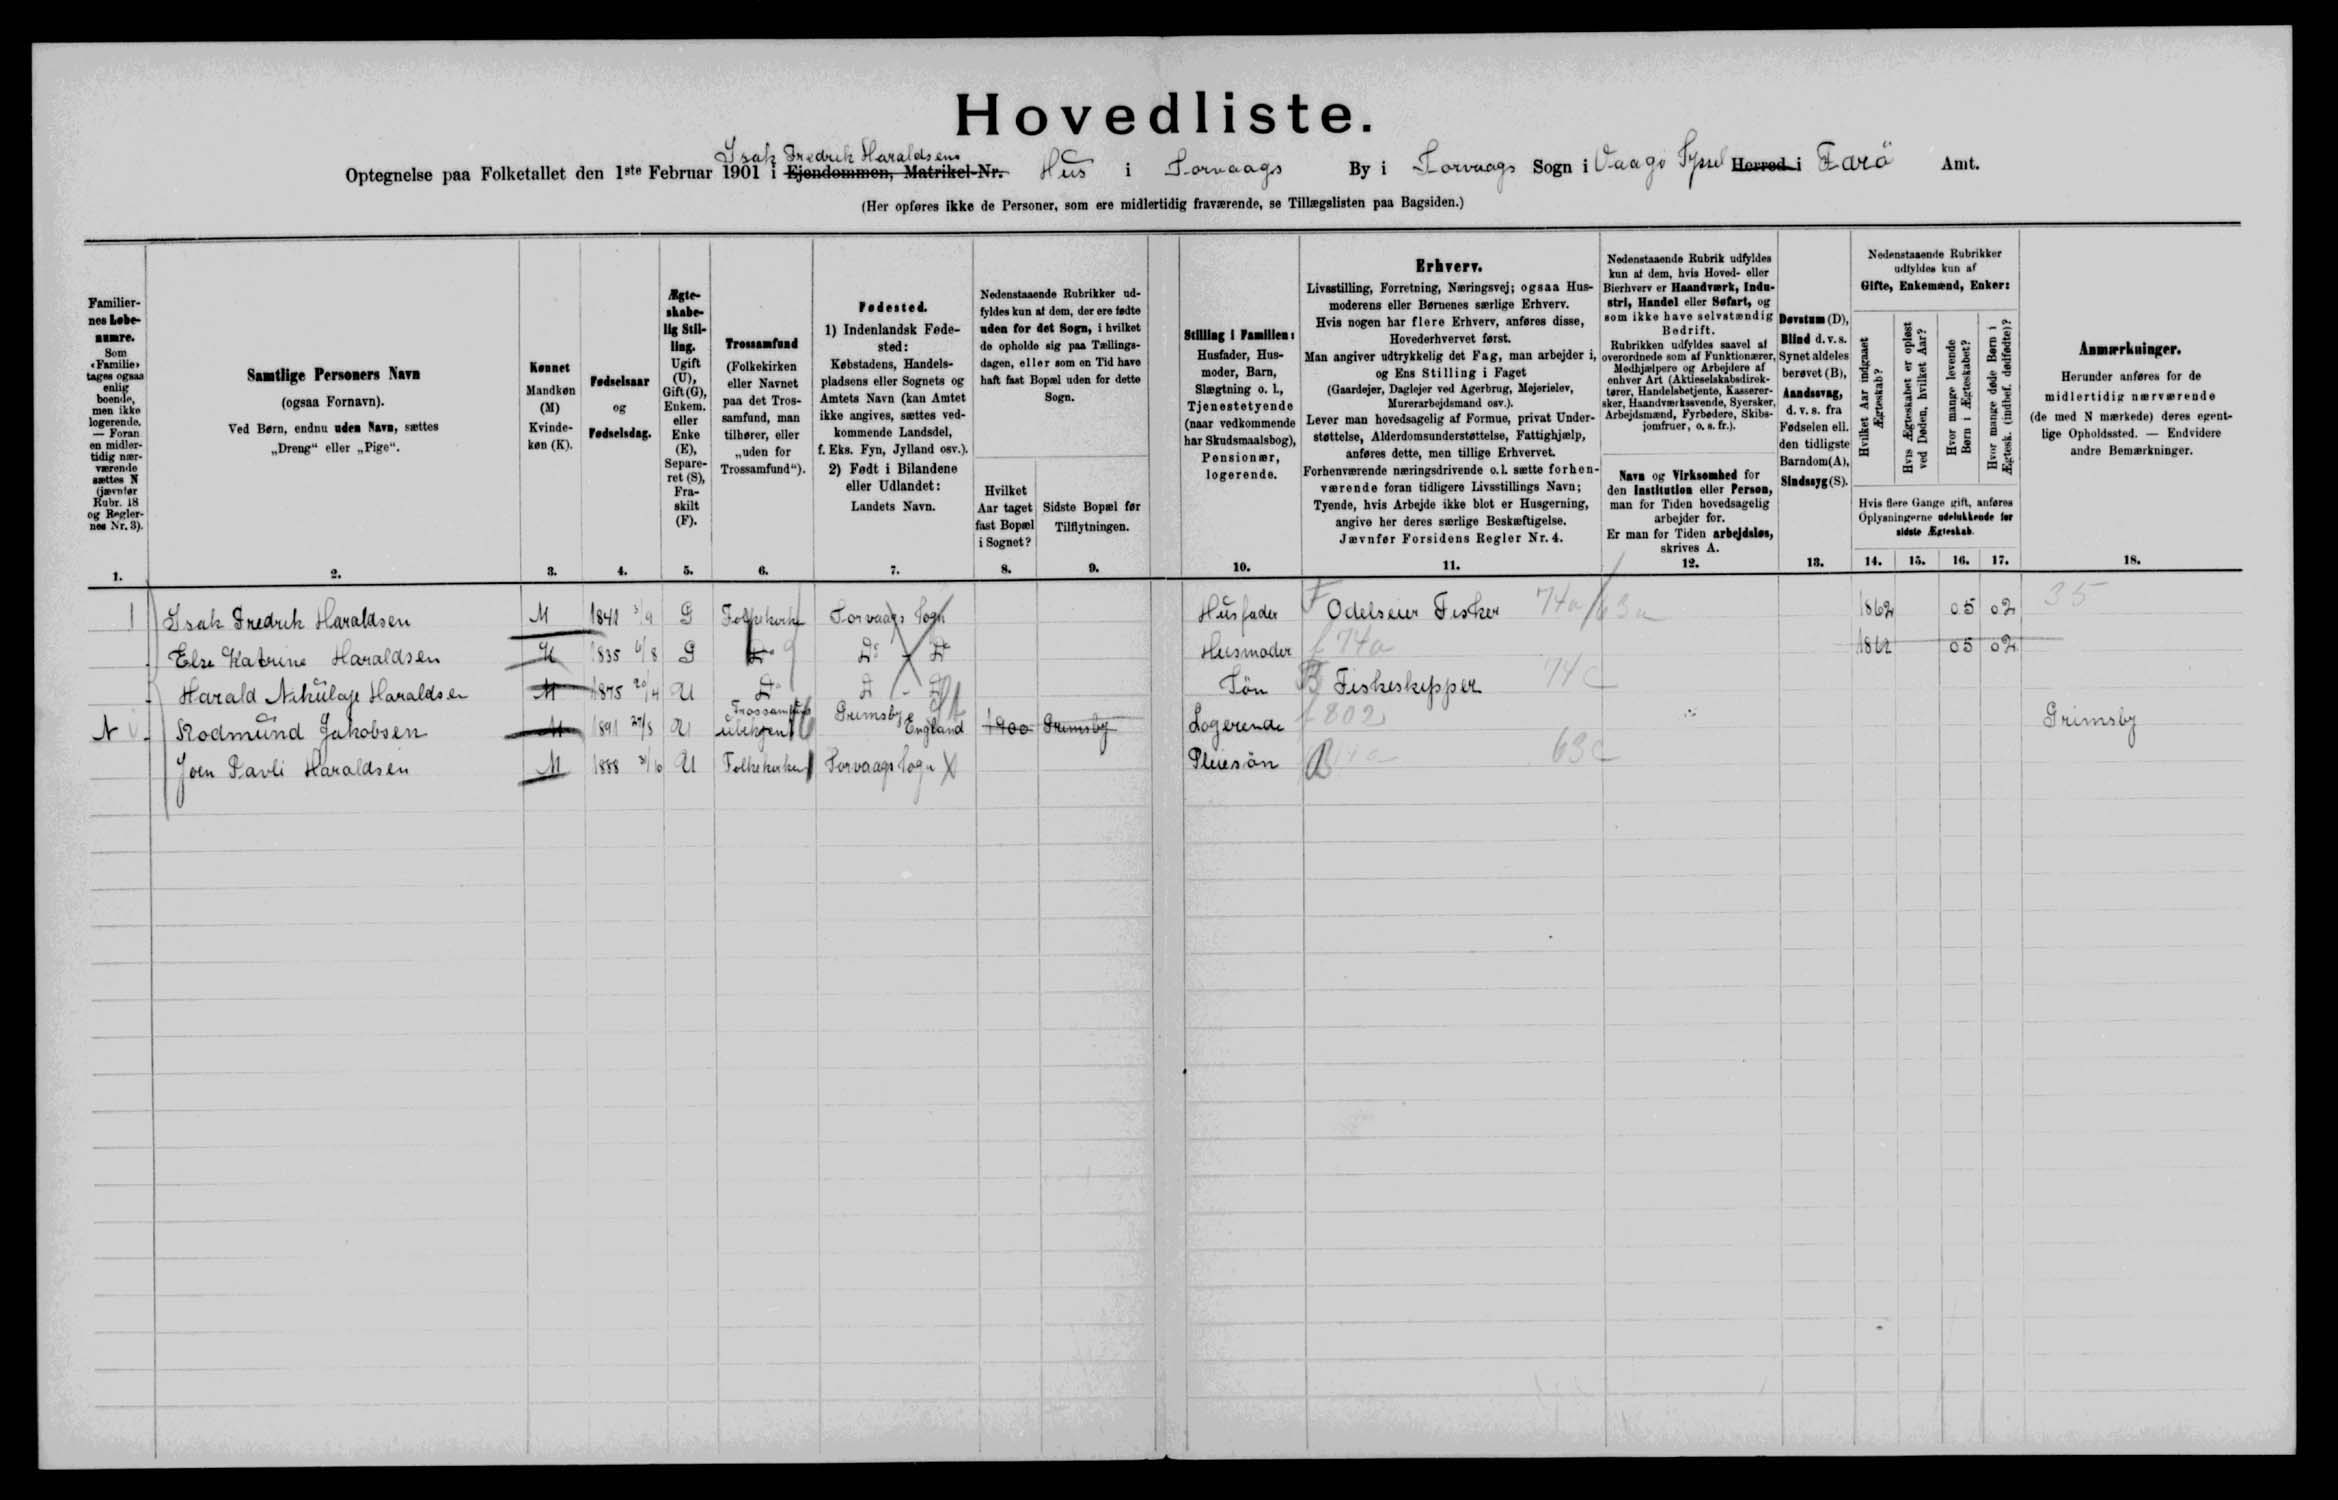 Hovedliste.
Isak Fredrik Haraldsens
Optegnelse paa Folketallet den 1ste Februar 1901 i Ejendommen, Matrikel-Nr. Hus i Sorvaags By i Sorvaags Sogn i Vaagø Syssel Herred i Farö Amt.
(Her opføres ikke de Personer, som ere midlertidig fraværende, se Tillægslisten paa Bagsiden.)
Familiernes Løbenumre.
Som «Familie» tages ogsaa enlig boende, men ikke logerende. — Foran en midlertidig nærværende sættes N (jævnfør Rubr. 18 og Reglernes Nr. 3).
1.
Samtlige Personers Navn
(ogsaa Fornavn).
Ved Børn, endnu uden Navn, sættes
„Dreng“ eller „Pige“.
2.
Kønnet
Mandkøn (M)
Kvindekøn (K).
3.
Fødselsaar
og
Fødselsdag.
4.
Ægteskabelig Stilling.
Ugift (U), Gift (G), Enkem. eller Enke (E), Separeret (S), Fraskilt (F).
5.
Trossamfund
(Folkekirken eller Navnet paa det Trossamfund, man tilhører, eller „uden for Trossamfund“).
6.
Fødested.
1) Indenlandsk Fødested:
Købstadens, Handelspladsens eller Sognets og Amtets Navn (kan Amtet ikke angives, sættes vedkommende Landsdel, f. Eks. Fyn, Jylland osv.).
2) Født i Bilandene eller Udlandet:
Landets Navn.
7.
Nedenstaaende Rubrikker udfyldes kun af dem, der ere fødte uden for det Sogn, i hvilket de opholde sig paa Tællingsdagen, eller som en Tid have haft fast Bopæl uden for dette Sogn.
Hvilket Aar taget fast Bopæl i Sognet?
8.
Sidste Bopæl før Tilflytningen.
9.
Stilling i Familien:
Husfader, Husmoder, Barn, Slægtning o. l., Tjenestetyende (naar vedkommende har Skudsmaalsbog), Pensionær, logerende.
10.
Erhverv.
Livsstilling, Forretning, Næringsvej; ogsaa Husmoderens eller Børnenes særlige Erhverv.
Hvis nogen har flere Erhverv, anføres disse, Hovederhvervet først.
Man angiver udtrykkelig det Fag, man arbejder i, og Ens Stilling i Faget
(Gaardejer, Daglejer ved Agerbrug, Mejerielev, Murerarbejdsmand osv.).
Lever man hovedsagelig af Formue, privat Understøttelse, Alderdomsunderstøttelse, Fattighjælp, anføres dette, men tillige Erhvervet.
Forhenværende næringsdrivende o. l. sætte forhenværende foran tidligere Livsstillings Navn;
Tyende, hvis Arbejde ikke blot er Husgerning, angive her deres særlige Beskæftigelse.
Jævnfør Forsidens Regler Nr. 4.
11.
Nedenstaaende Rubrik udfyldes kun af dem, hvis Hoved- eller Bierhverv er Haandværk, Industri, Handel eller Søfart, og som ikke have selvstændig Bedrift.
Rubrikken udfyldes saavel af overordnede som af Funktionærer, Medhjælpere og Arbejdere af enhver Art (Aktieselskabsdirektører, Handelsbetjente, Kasserersker, Haandværkssvende, Syersker, Arbejdsmænd, Fyrbødere, Skibsjomfruer, o. s. fr.).
Navn og Virksomhed for den Institution eller Person, man for Tiden hovedsagelig arbejder for.
Er man for Tiden arbejdsløs, skrives A.
12.
Døvstum (D),
Blind d. v. s. Synet aldeles berøvet (B),
Aandssvag, d. v. s. fra Fødselen ell. den tidligste Barndom (A),
Sindssyg (S).
13.
Nedenstaaende Rubrikker udfyldes kun af
Gifte, Enkemænd, Enker:
Hvilket Aar indgaaet Ægteskab?
Hvis Ægteskabet er opløst ved Døden, hvilket Aar?
Hvor mange levende Børn i Ægteskabet?
Hvor mange døde Børn i Ægtesk. (indbef. dødfødte)?
Hvis flere Gange gift, anføres Oplysningerne udelukkende for sidste Ægteskab.
14. 15. 16. 17.
Anmærkninger.
Herunder anføres for de midlertidig nærværende (de med N mærkede) deres egentlige Opholdssted. — Endvidere andre Bemærkninger.
18.
1 Isak Fredrik Haraldsen M 1841 G Folkekirke Sorvaags Sogn Husfader F Odelseier Fisker 74a 1862 05 02 35
Else Katrine Haraldsen K 1835 6/8 G Do Do - Do Husmoder f 74a 1862 05 02
Harald Nikulaje Haraldsen M 1875 20/4 U Do Do - Do Sön B Fiskeskipper 74c
N Rodmund Jakobsen M 1891 27/8 U Trossamfund ubekjent Grimsby England 1900 Grimsby Logerende f 802 Grimsby
Joen Pavli Haraldsen M 1888 U Folkekirken Sorvaags Sogn Pleiesön B 63c